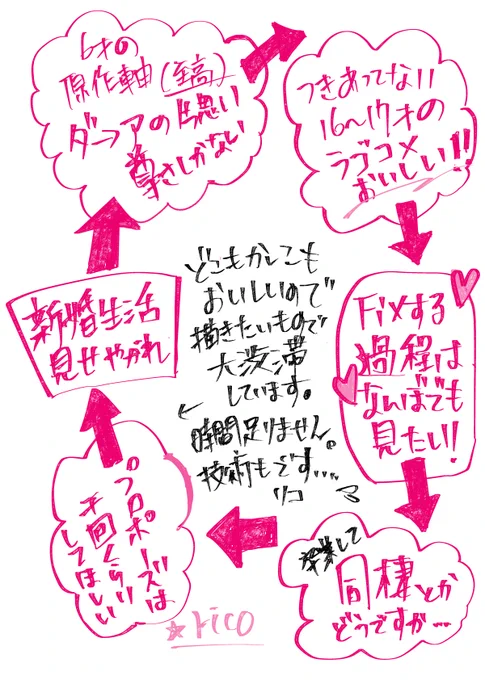 6才の
原作軸(至高)
ダーフアの時思い
尊さしかない
つきあってない
16〜17才の
ラブコメ
おいしい!!
Fixする
過程は
なんぼでも
見たい!!
卒業して
同棲とか
どうですか…
プロポーズは
千回くらい
してほしい
新婚生活
見せやがれ
どこもかしこも
おいしいので
描きたいもので
大渋滞
しています。
時間足りません。
技術もです…
リコ
☆rico